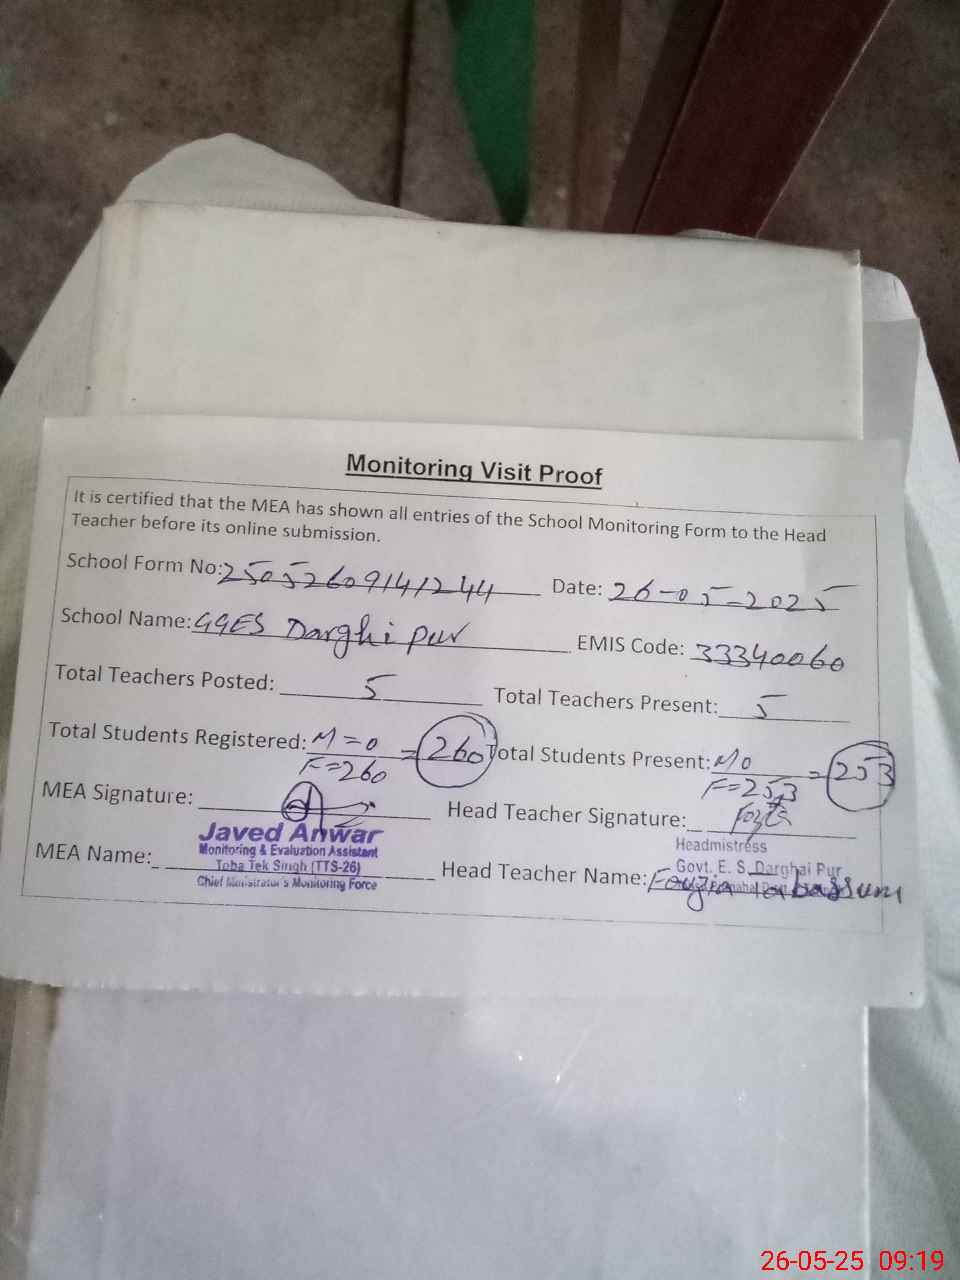 Monitoring Visit Proof
It is certified that the MEA has shown all entries of the School Monitoring Form to the Head
Teacher before its online submission.
School Form No: 25052609141244 Date: 26-05-2025
School Name: GGES Darghi pur EMIS Code: 33340060
Total Teachers Posted: 5 Total Teachers Present: 5
Total Students Registered: M=0 F=260 = 260 Total Students Present: M 0 F=253 = 253
MEA Signature: Head Teacher Signature:
Javed Anwar
Monitoring & Evaluation Assistant
Toba Tek Singh (TTS-26)
Monitoring Force
MEA Name:
Headmistress
Govt. E. S. Darghai Pur
Head Teacher Name: Fouzia Tabassum
26-05-25 09:19